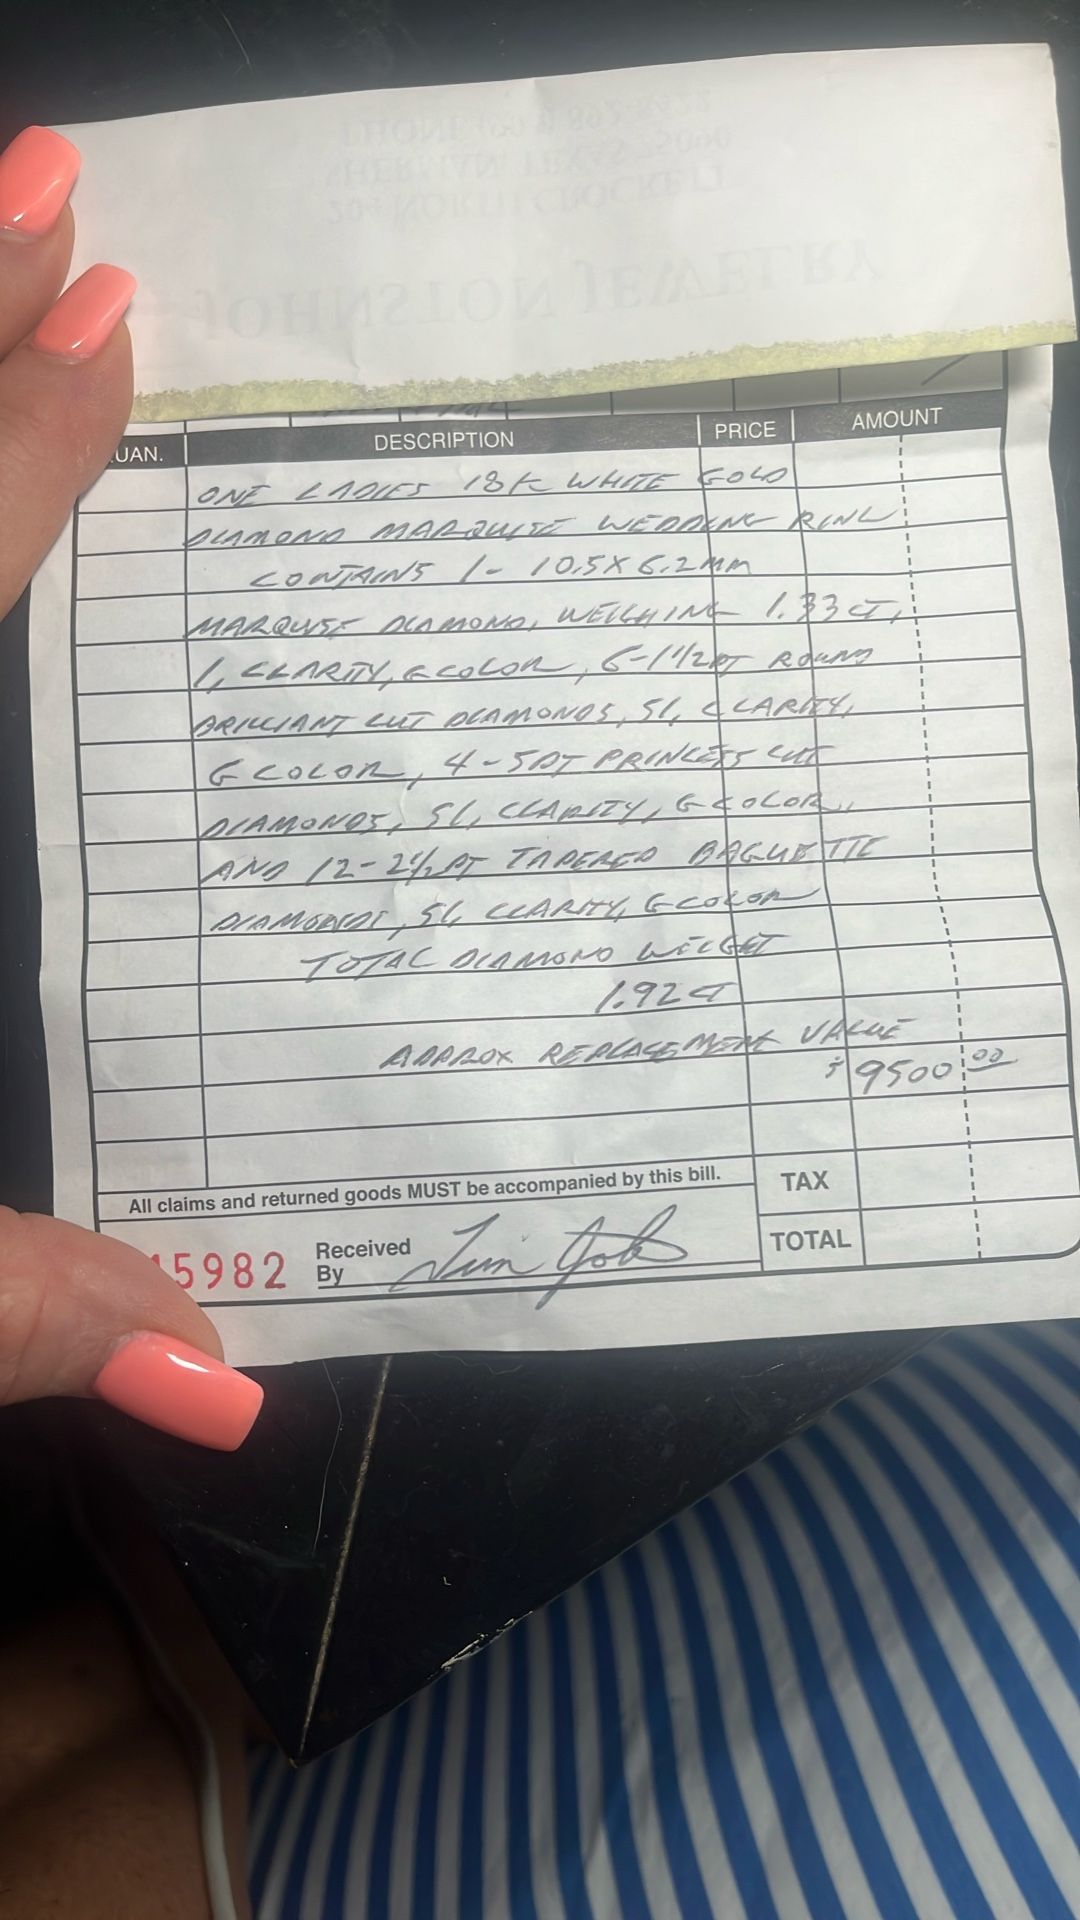 PHONE (903) 892-8622
SHERMAN, TEXAS 75090
204 NORTH CROCKETT
JOHNSTON JEWELRY
UAN. DESCRIPTION PRICE AMOUNT
ONE LADIES 18K WHITE GOLD
DIAMOND MARQUISE WEDDING RING
CONTAINS 1- 10.5X6.2MM
MARQUISE DIAMOND, WEIGHING 1.33CT,
I, CLARITY, G COLOR, 6-1 1/2PT ROUND
BRILLIANT CUT DIAMONDS, SI, CLARITY,
G COLOR, 4-5PT PRINCESS CUT
DIAMONDS, SI, CLARITY, G COLOR,
AND 12-2 1/2PT TAPERED BAGUETTE
DIAMONDS, SI, CLARITY, G COLOR
TOTAL DIAMOND WEIGHT
1.92 CT
APPROX REPLACEMENT VALUE
$9500 00
All claims and returned goods MUST be accompanied by this bill.
TAX
15982
Received By
TOTAL